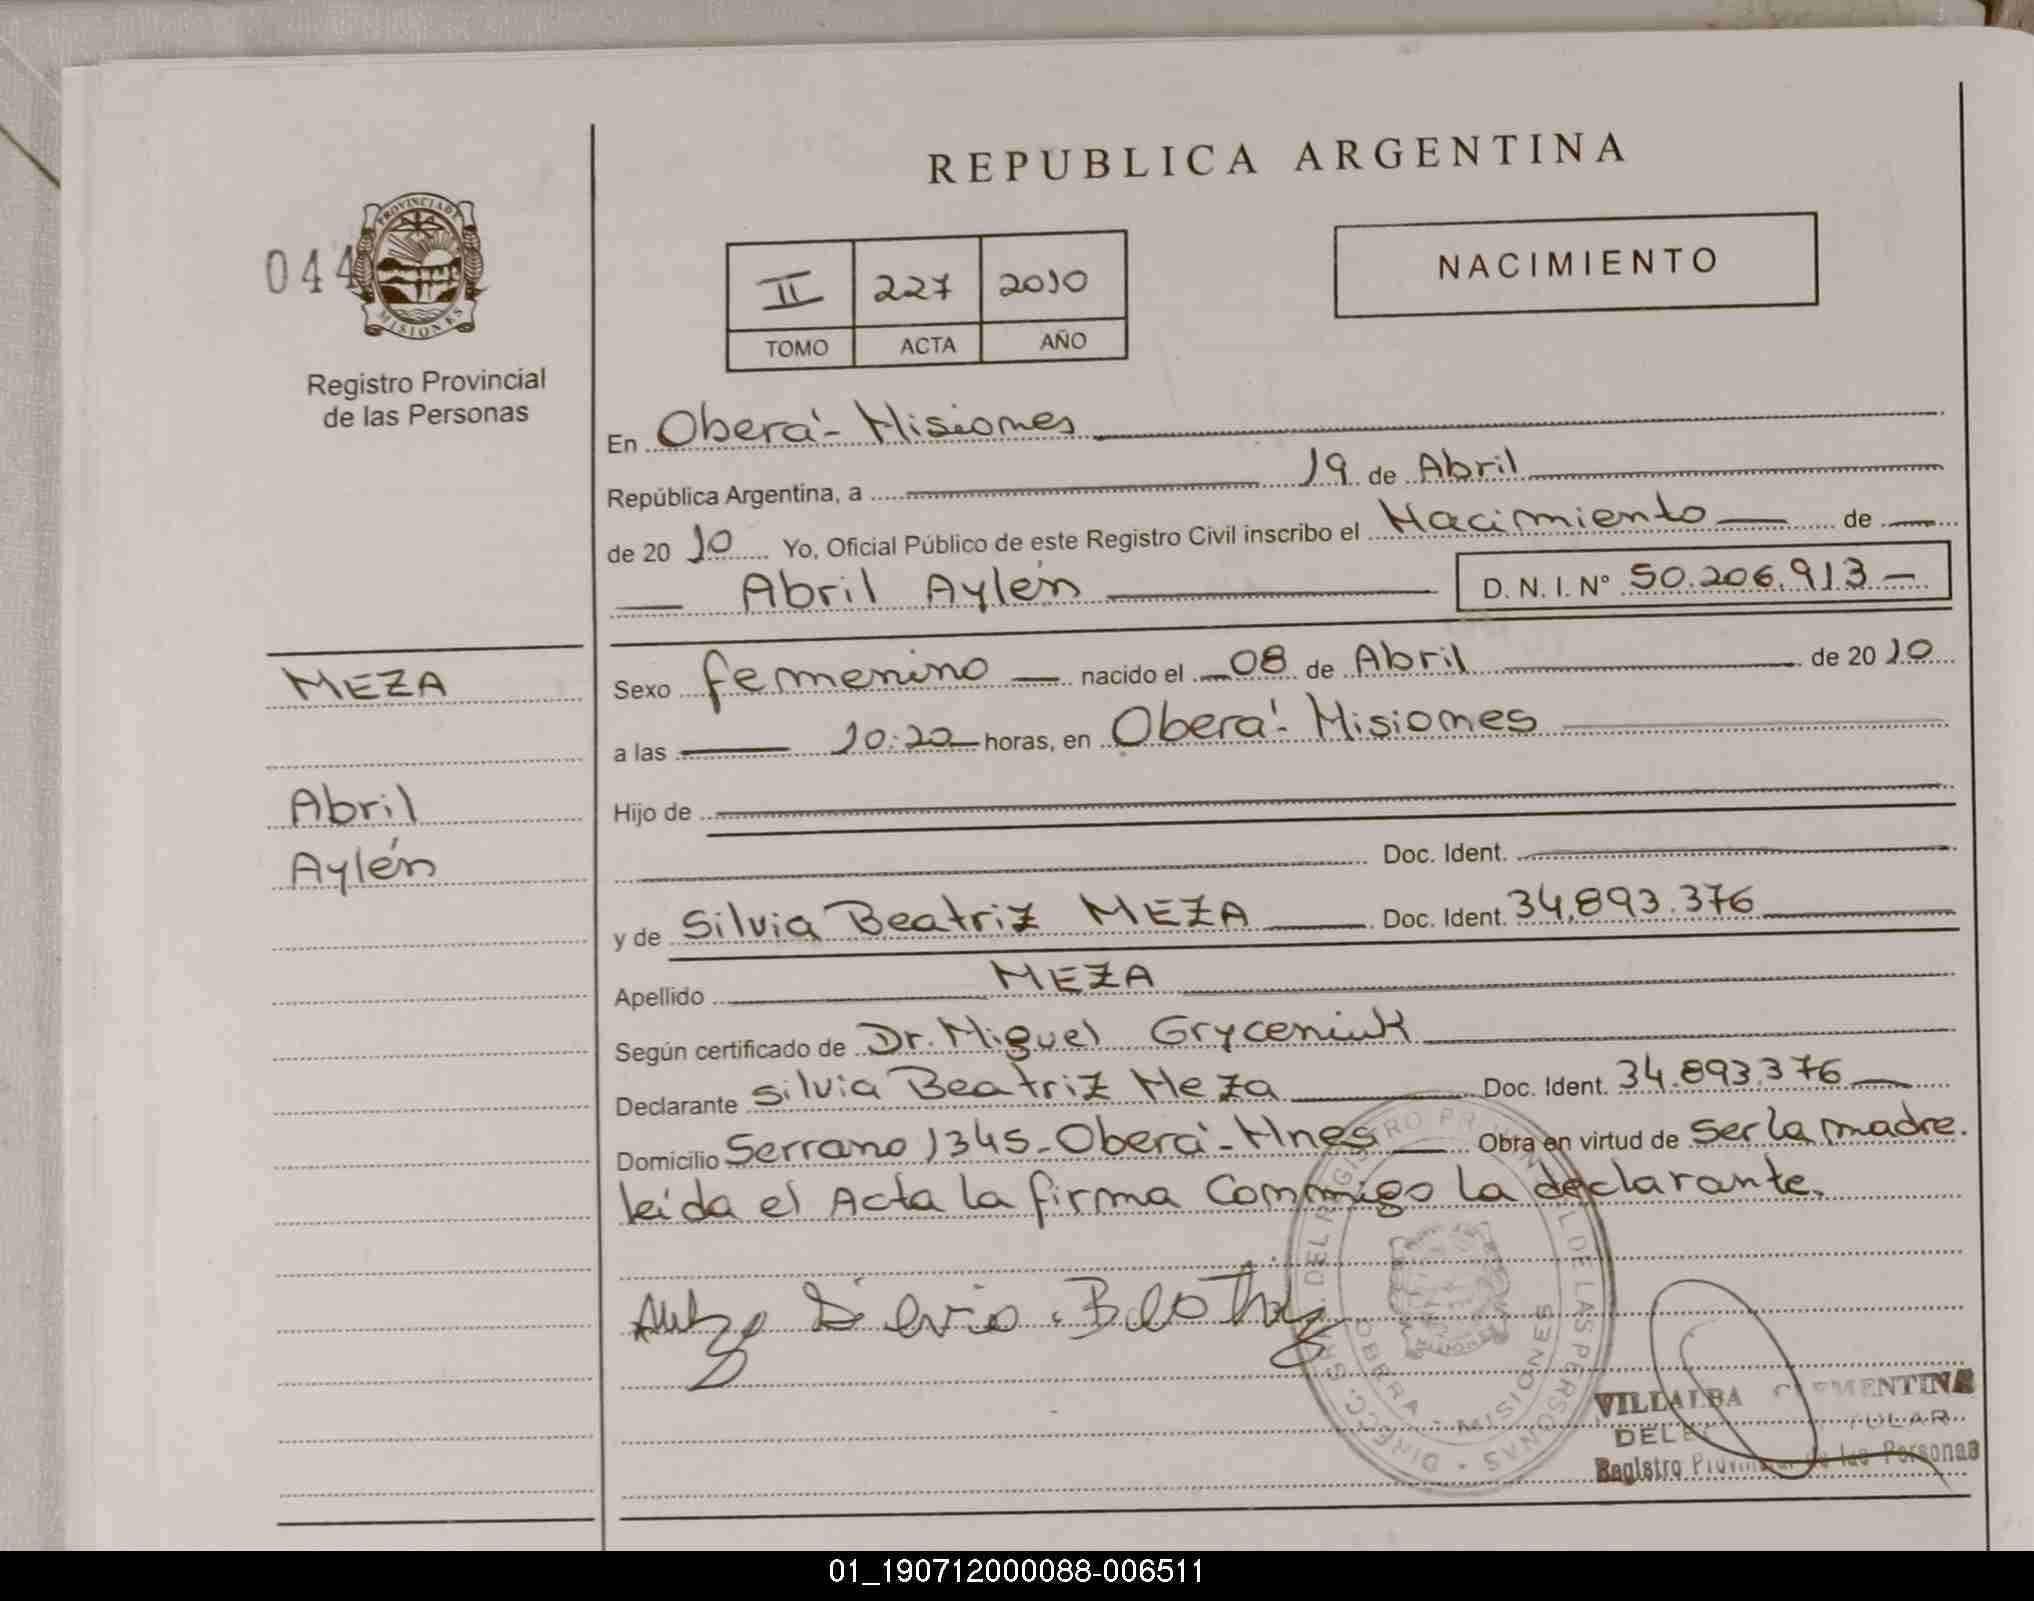 REPUBLICA ARGENTINA
044
PROVINCIA DE
MISIONES
Registro Provincial
de las Personas
II 227 2010
TOMO ACTA AÑO
NACIMIENTO
En Oberá - Misiones
República Argentina, a 19 de Abril
de 20 10 Yo, Oficial Público de este Registro Civil inscribo el Nacimiento de
Abril Aylén D. N. I. N° 50.206.913
MEZA
Abril
Aylén
Sexo femenino nacido el 08 de Abril de 20 10
a las 10:20 horas, en Oberá - Misiones
Hijo de
Doc. Ident.
y de Silvia Beatriz MEZA Doc. Ident. 34.893.376
Apellido MEZA
Según certificado de Dr. Miguel Gryceniuk
Declarante Silvia Beatriz Meza Doc. Ident. 34.893.376
Domicilio Serrano 1345 - Oberá - Mnes Obra en virtud de ser la madre.
leída el Acta la firma conmigo la declarante.
Silvia Beatriz
DEL REGISTRO DE LAS PERSONAS
OBERA - MISIONES
VILLALBA CLEMENTINA
Registro de las Personas
01_190712000088-006511